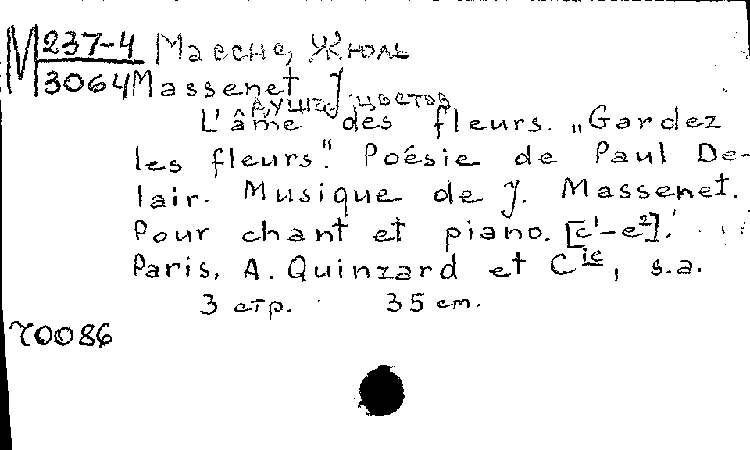 М 237-4 Масснe, Жюль
3064 Massenet J.
Душа цветов
L'âme des fleurs. „Gardez
les fleurs". Poésie de Paul De-
lair. Musique de J. Massenet.
Pour chant et piano. [c¹-e²].
Paris, A. Quinzard et Cie, s.a.
3 стр. 35 cm.
70086